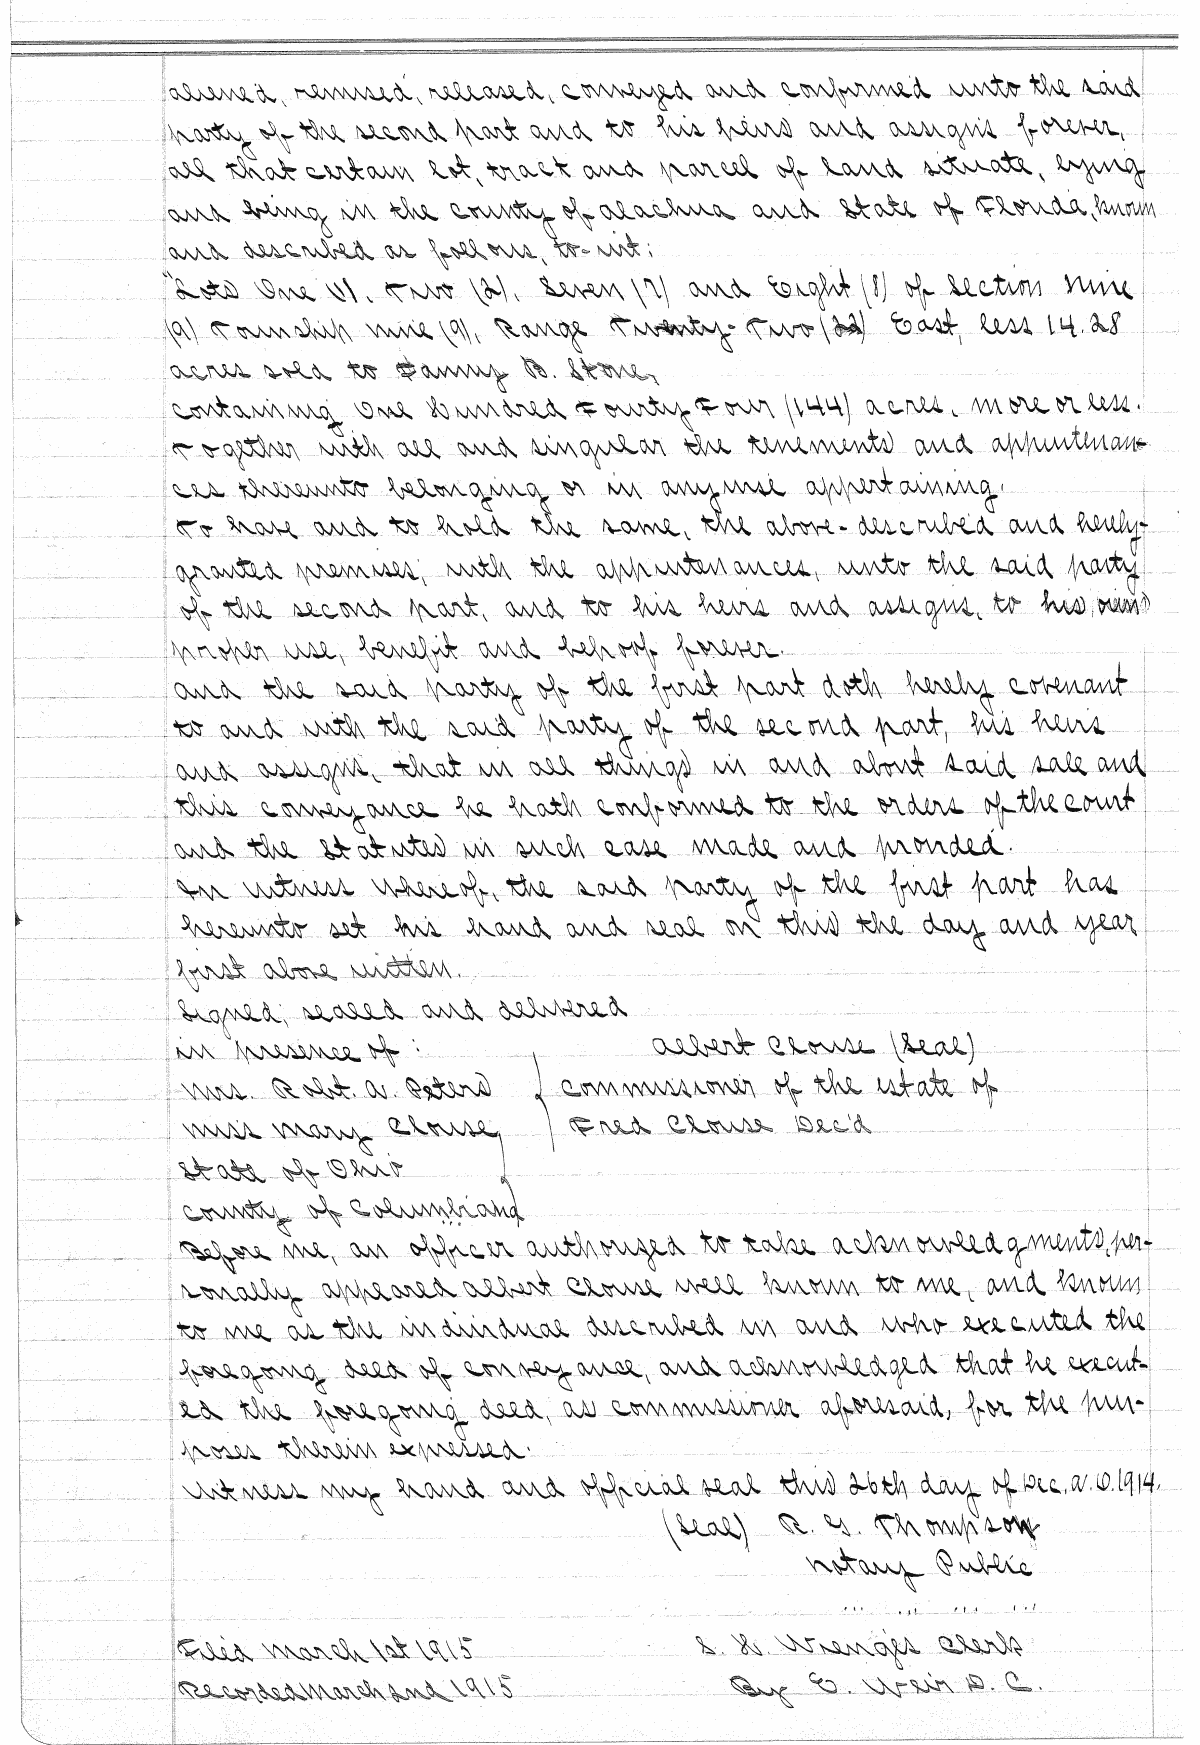 aliened, remised, released, conveyed and confirmed unto the said
party of the second part and to his heirs and assigns forever,
all that certain lot, tract and parcel of land situate, lying
and being in the county of Alachua and State of Florida, known
and described as follows, to-wit:
"Lots One (1), Two (2), Seven (7) and Eight (8) of Section Nine
(9) Township nine (9), Range Twenty-Two (22) East, less 14.28
acres sold to Fanny B. Stone,
containing One Hundred Fourty Four (144) acres, more or less.
Together with all and singular the tenements and appurtenan-
ces thereunto belonging or in anywise appertaining.
To have and to hold the same, the above-described and hereby-
granted premises, with the appurtenances, unto the said party
of the second part, and to his heirs and assigns, to his own
proper use, benefit and behoof forever.
and the said party of the first part doth hereby covenant
to and with the said party of the second part, his heirs
and assigns, that in all things in and about said sale and
this conveyance he hath conformed to the orders of the court
and the Statutes in such case made and provided.
In Witness Whereof, the said party of the first part has
hereunto set his hand and seal on this the day and year
first above written.
Signed, sealed and delivered
in presence of: Albert Clouse (Seal)
Mrs. Robt. A. Peters Commissioner of the estate of
Miss Mary Clouse, Fred Clouse Dec'd
State of Ohio
County of Columbiana
Before me, an officer authorized to take acknowledgments, per-
sonally appeared Albert Clouse well known to me, and known
to me as the individual described in and who executed the
foregoing deed of conveyance, and acknowledged that he execut-
ed the foregoing deed, as commissioner aforesaid, for the pur-
poses therein expressed.
Witness my hand and official seal this 26th day of Dec. A.D. 1914.
(Seal) R. G. Thompson
Notary Public
Filed March 1st 1915 S. H. Wienges Clerk
Recorded March 2nd 1915 By E. Weir D. C.